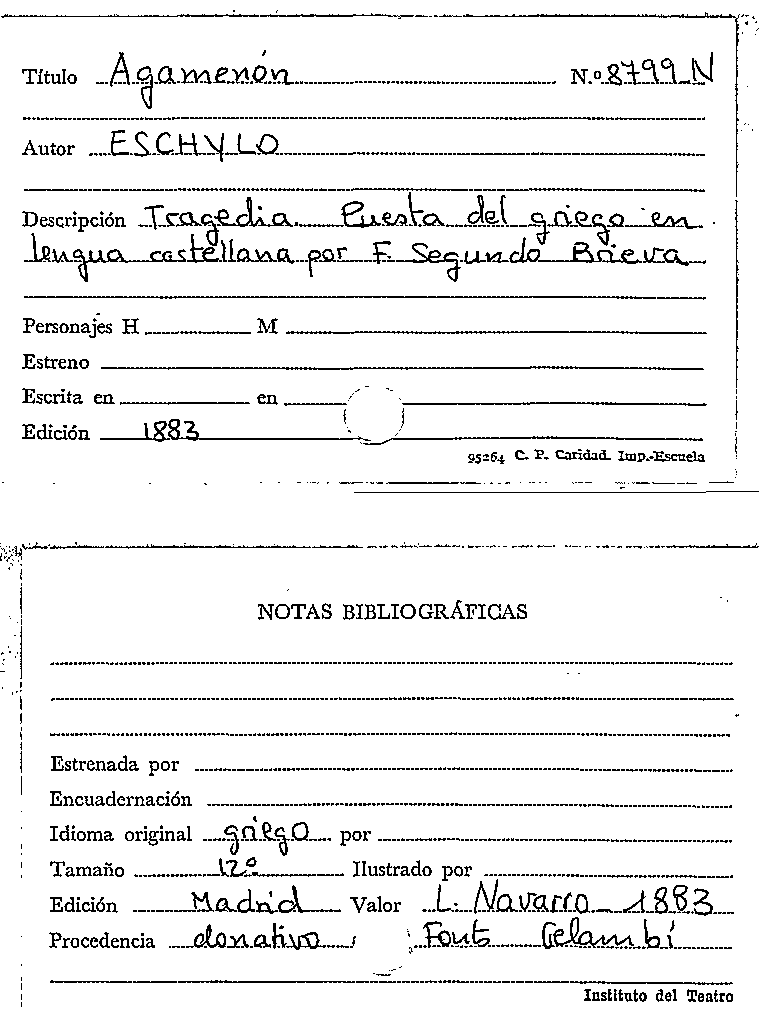 Título Agamenón N.º 8799 N
Autor ESCHYLO
Descripción Tragedia. Puesta del griego en
lengua castellana por F. Segundo Brieva
Personajes H M
Estreno
Escrita en en
Edición 1883
95264 C. P. Caridad. Imp.-Escuela
NOTAS BIBLIOGRÁFICAS
Estrenada por
Encuadernación
Idioma original griego por
Tamaño 12º Ilustrado por
Edición Madrid Valor L. Navarro - 1883
Procedencia donativo Fonts Gelambí
Instituto del Teatro